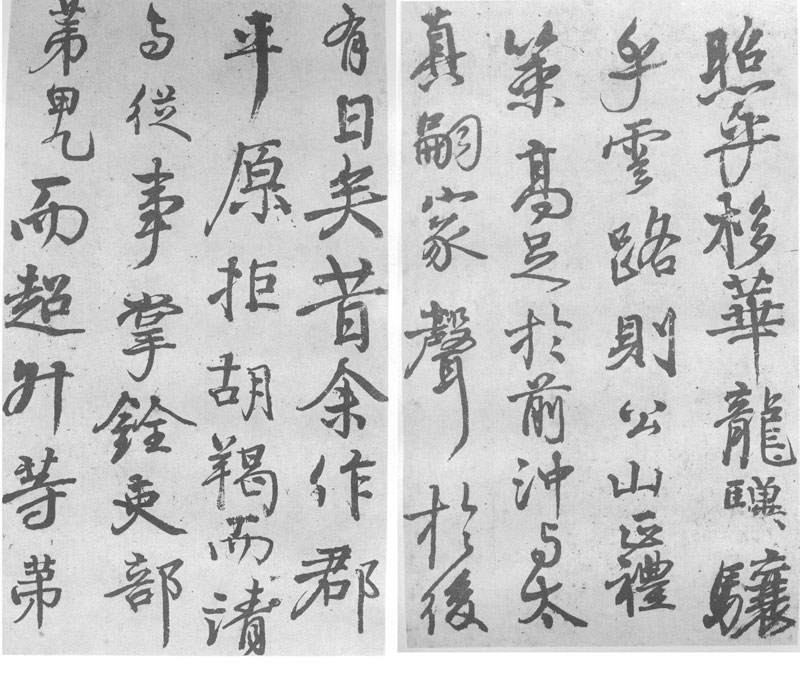 照乎栘華龍驥驤
乎雲路則公山正禮
策高足於前沖与太
真嗣家聲於後
有日矣昔余作郡
平原拒胡羯而請
与從事掌銓吏部
苐甲乙而超升等苐